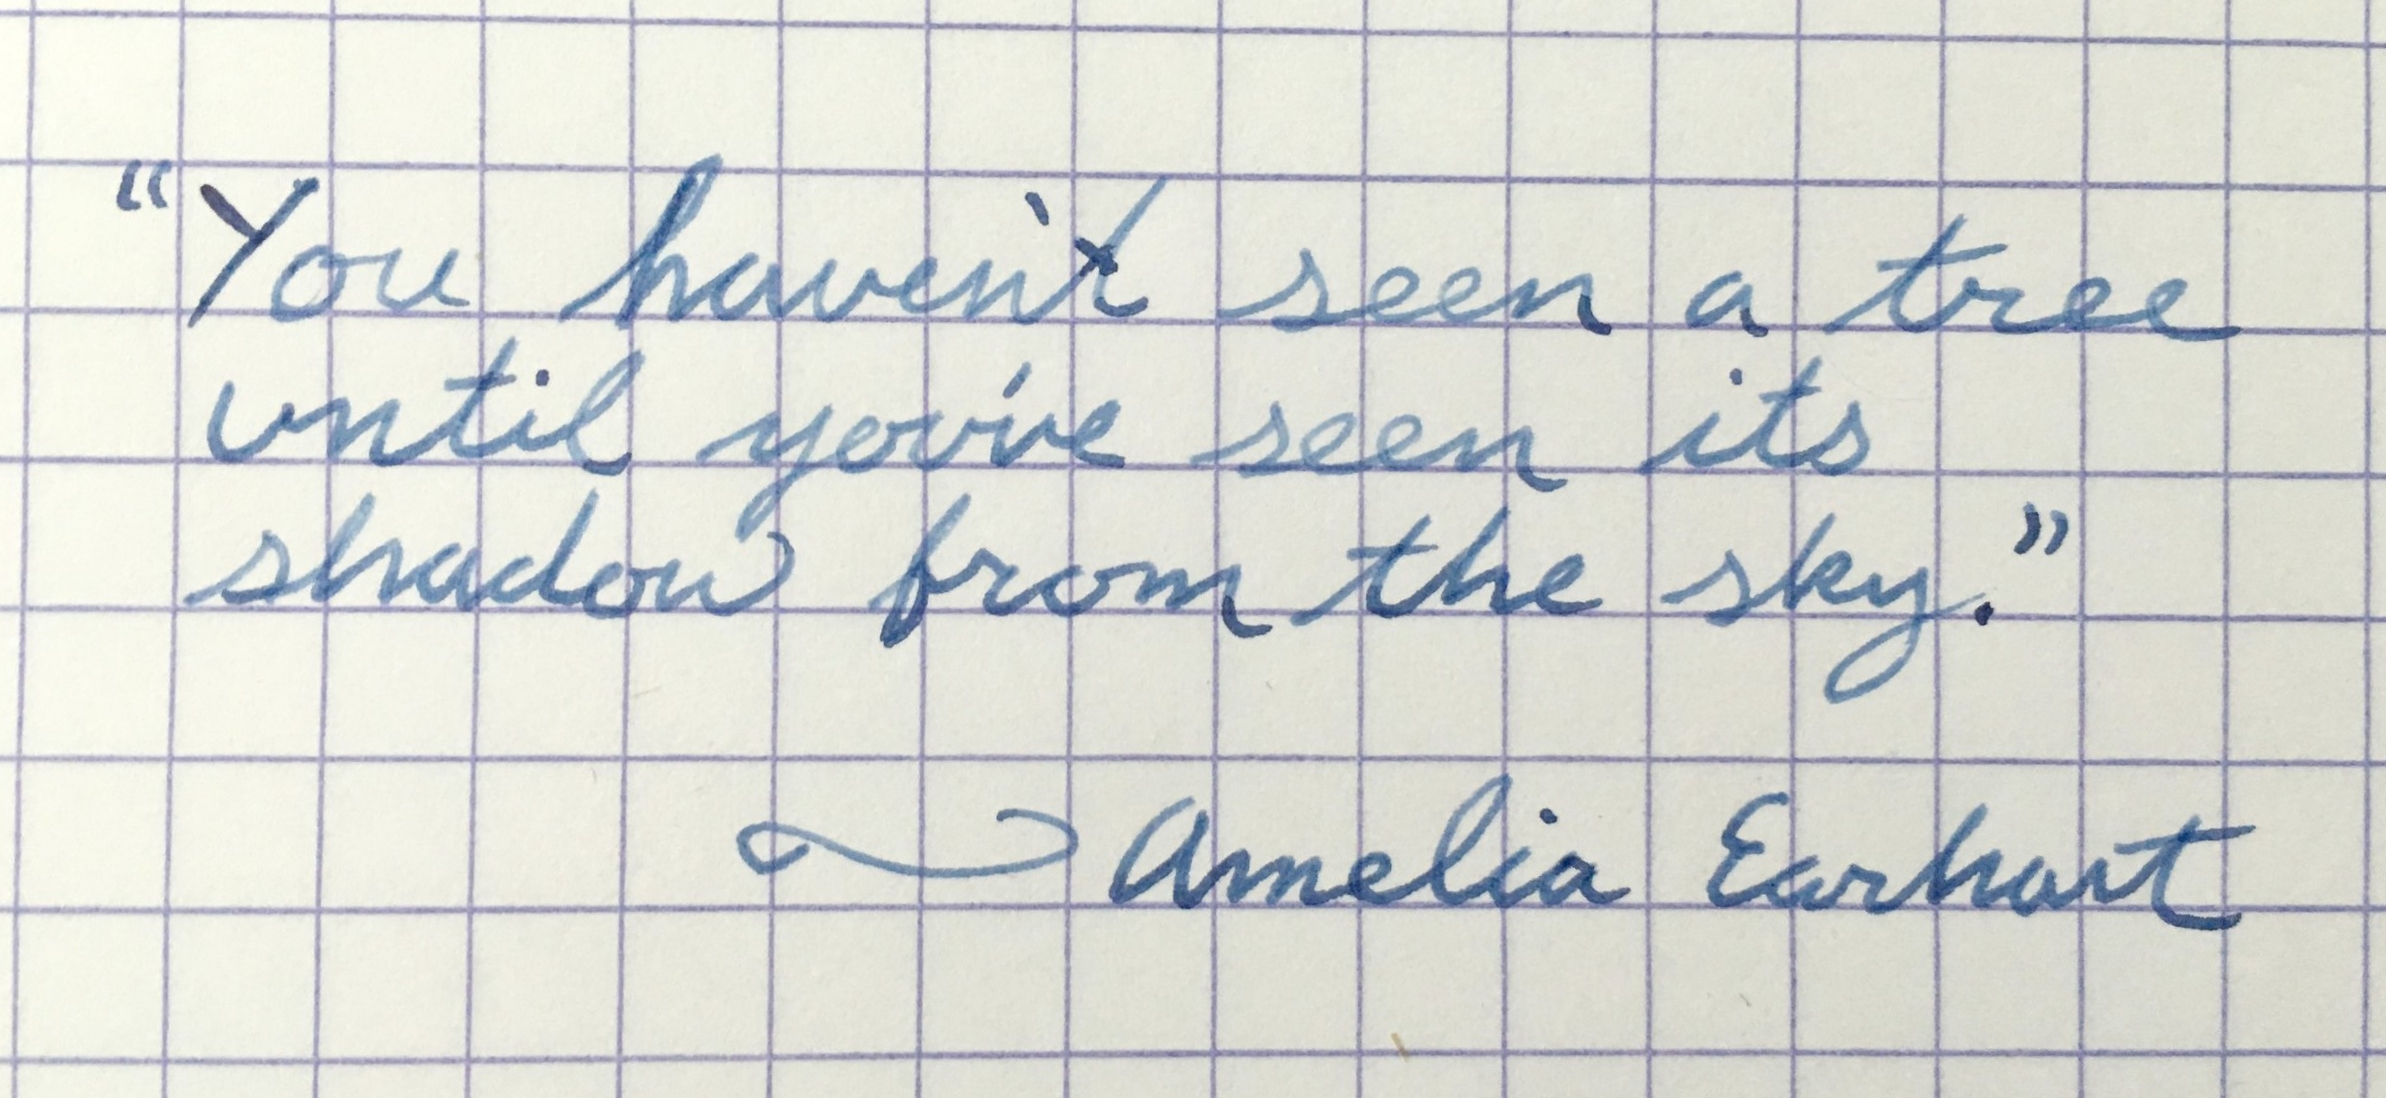 “You haven't seen a tree
until you've seen its
shadow from the sky.”
~ Amelia Earhart